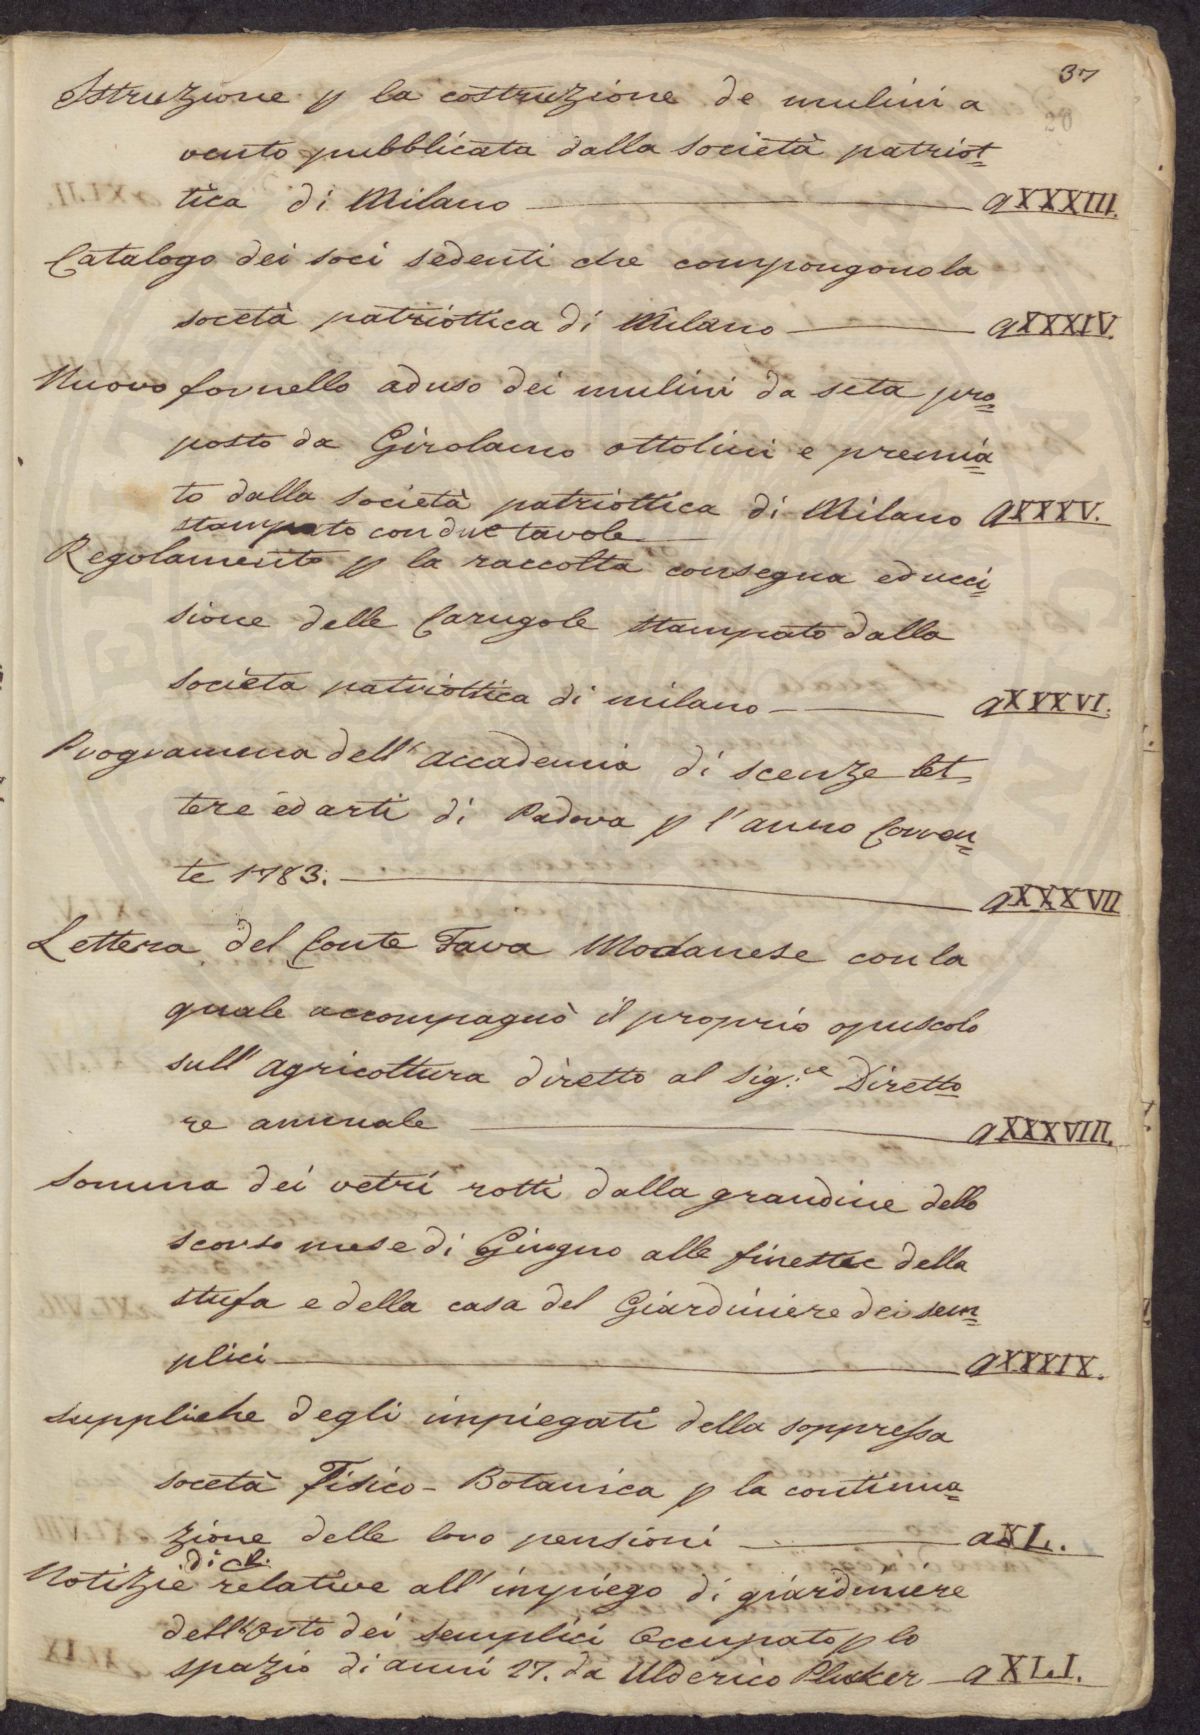 37
20
Istruzione p la costruzione de mulini a
vento pubblicata dalla società patriot=
tica di Milano a XXXIII.
Catalogo dei soci sedenti che compongono la
socetà patriottica di Milano a XXXIV.
Nuovo fornello ad uso dei mulini da seta pro=
posto da Girolamo ottolini e premia=
to dalla società patriottica di Milano a XXXV.
stampato con due tavole
Regolamento p la raccolta consegna ed ucci=
sione delle Carugole stampato dalla
società patriottica di milano a XXXVI.
Programma dell'accademia di scenze let=
tere ed arti di Padova p l'anno Corren=
te 1783. a XXXVII
Lettera del Conte Fava Modanese con la
quale accompagnò il proprio opuscolo
sull'agricoltura diretto al Sig.re Diretto=
re annuale a XXXVIII.
somma dei vetri rotti dalla grandine dello
scorso mese di Giugno alle finestre della
stufa e della casa del Giardiniere dei sem=
plici a XXXIX.
suppliche degli inpiegati della soppressa
socetà Fisico-Botanica p la continua=
zione delle loro pensioni a XL.
di
Notizie relative all'inpiego di giardiniere
dell'Orto dei semplici Occupato p lo
spazio di anni 27. da Ulderico Pluker a XLI.